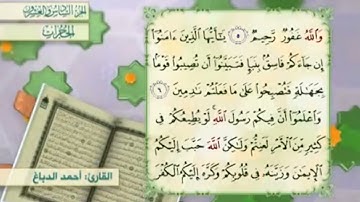 الجزء السادس والعشرون
الحجرات
وَاللَّهُ غَفُورٌ رَّحِيمٌ ٥ يَٰٓأَيُّهَا ٱلَّذِينَ ءَامَنُوٓا۟
إِن جَآءَكُمْ فَاسِقٌۢ بِنَبَإٍ فَتَبَيَّنُوٓا۟ أَن تُصِيبُوا۟ قَوْمًۢا
بِجَهَٰلَةٍ فَتُصْبِحُوا۟ عَلَىٰ مَا فَعَلْتُمْ نَٰدِمِينَ ٦
وَٱعْلَمُوٓا۟ أَنَّ فِيكُمْ رَسُولَ ٱللَّهِ لَوْ يُطِيعُكُمْ فِى
كَثِيرٍ مِّنَ ٱلْأَمْرِ لَعَنِتُّمْ وَلَٰكِنَّ ٱللَّهَ حَبَّبَ إِلَيْكُمُ
ٱلْإِيمَٰنَ وَزَيَّنَهُۥ فِى قُلُوبِكُمْ وَكَرَّهَ إِلَيْكُمُ ٱلْكُفْرَ
القارئ: أحمد الدباغ